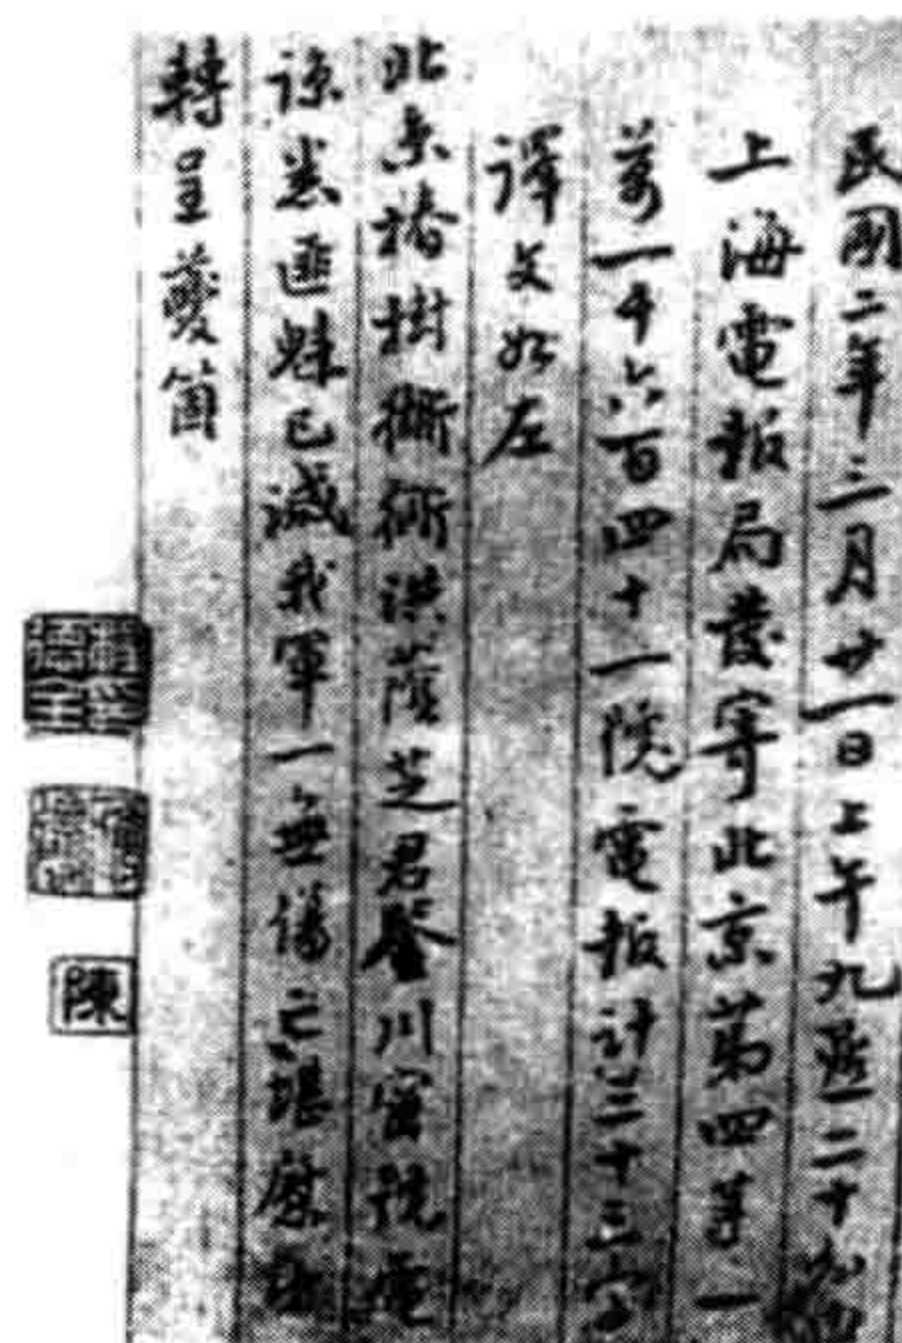 民國二年三月廿一日上午九鐘二十九
上海電報局發寄北京第四等一
萬一千六百四十一號電報計三十三字
譯文如左
北京椿樹衚衕洪蔭芝君鑒川密號電
諒悉匪魁已滅我軍一無傷亡堪慰望
轉呈夔箇
陳